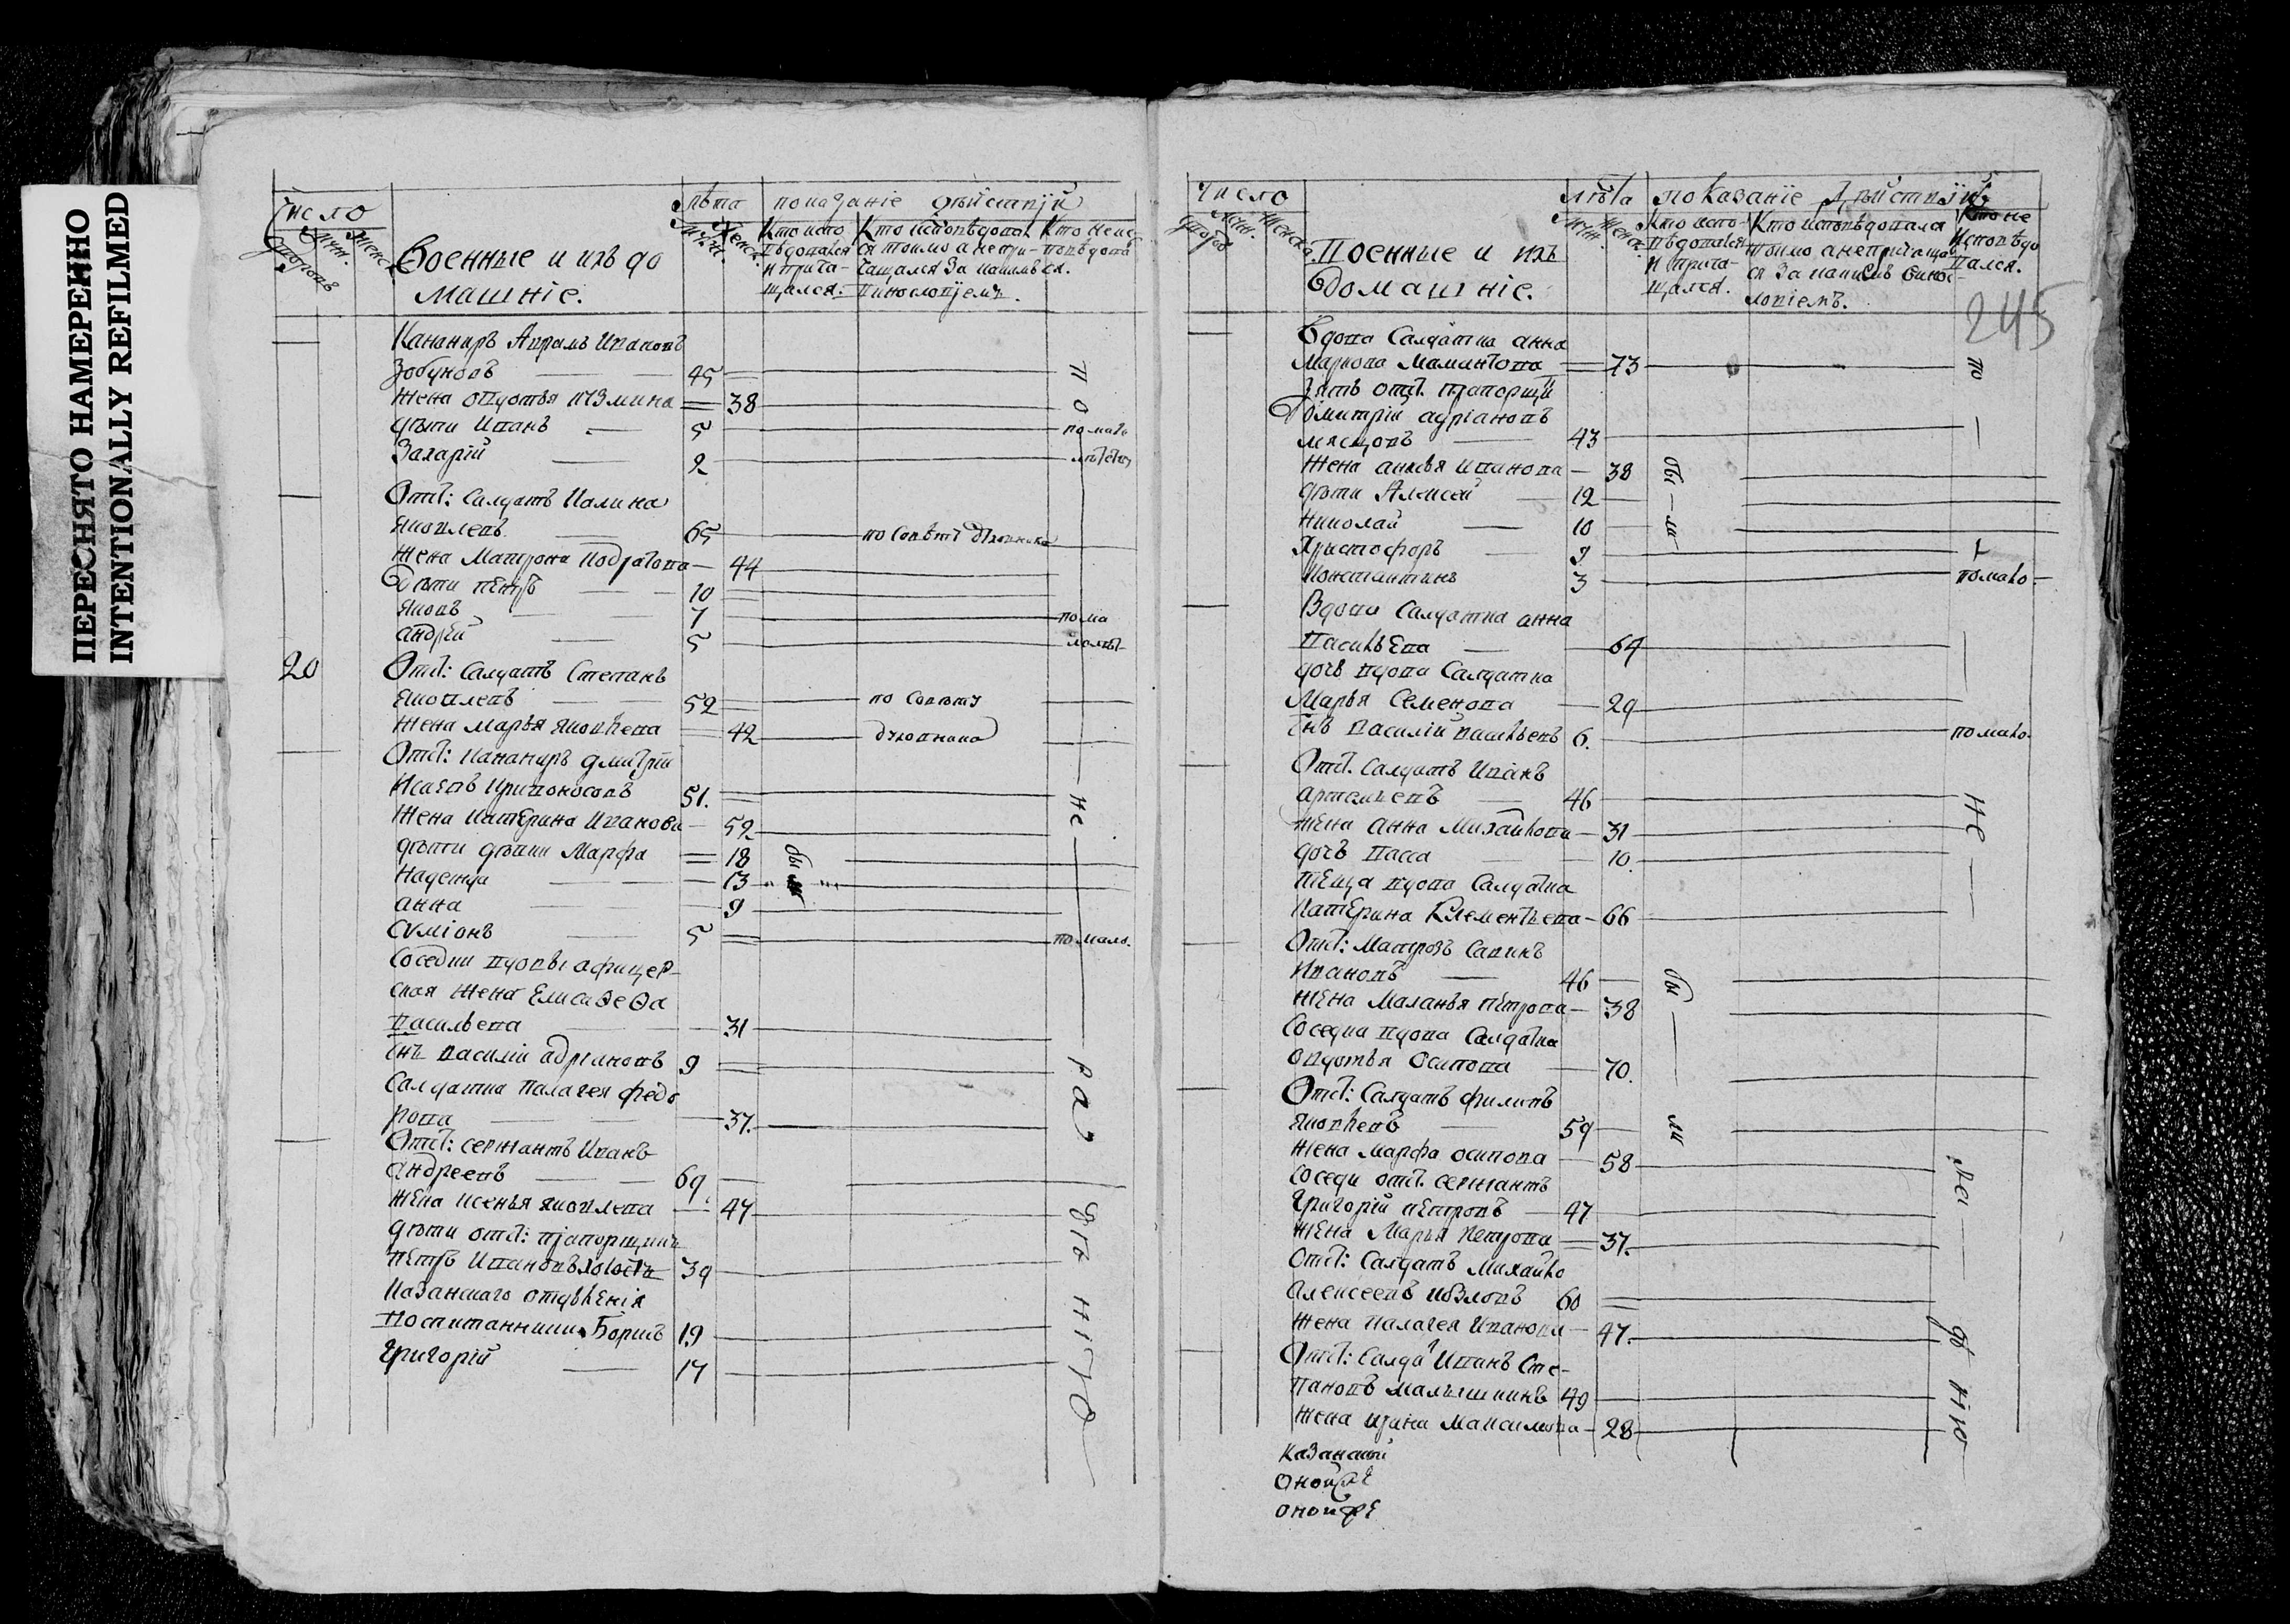 ПЕРЕСНЯТО НАМЕРЕННО
INTENTIONALLY REFILMED
Число
Дворовъ
Мужс.
Женс.
Военные и ихъ до
машніе.
Лѣта
Мужс.
Женс.
показаніе дѣйствій
Кто испо
вѣдался
и прича-
щался.
Кто исповѣдова
ся токмо а непри-
чащался за какимъ
винословіемъ.
Кто неис-
повѣдова
ся.
Канониръ Аврамъ Иванов
Зобуновъ 45
Жена Овдотья Кузмина 38
дѣти Иванъ 5 по мало
Захарій 2 лѣтству
по
Отст: Салдатъ Калина
Яковлевъ 65 по совѣту духовника
Жена Матрона Кодратова 44
дѣти Петръ 10
Яковъ 7 по ма
андрей 5 лолѣт
20
Отст: Салдатъ Степанъ
Яковлевъ 52 по совѣту
Жена Марья Яковлева 42 духовнова
Отст: Канониръ Дмитрій
Исаевъ Кривоносовъ 51.
Жена Катерина Иванова 52
дѣти дѣвки Марфа 18
Надежда 13
были
анна 9
Сѵміонъ 5 по мало.
Соседки вдовы афицер-
ская жена Елисавеѳа
Васильева 31
Снъ Василій адріановъ 9
Салдатка Палагея Федо
рова 37.
Отст: сержантъ Иванъ
андреевъ 69.
Жена Ксенья Яковлева 47
дѣти отст: прапорщикъ
Петръ Ивановъ холостъ 39
Казанскаго отдѣленія
Воспитанники Борисъ 19
Григорій 17
не ра дѣ нїю
число
Дворов
Мужс.
Женск.
Военные и ихъ
домашніе.
лѣта
Мужс.
Женс.
показаніе дѣйствій
Кто испо-
вѣдовался
и прича-
щался.
Кто исповѣдовалс
токмо а непричащал
ся за какимъ винос-
ловіемъ.
Кто не
исповѣдо
вался.
245
Вдова Салдатка анна
Маркова Мамантова 73
Зять отст. прапорщи
Дмитрій адріановъ
мясцовъ 43
Жена анисья Иванова 38
дѣти Алексей 12
Николай 10
бы-ли-
Христофоръ 9
Константинъ 3 по мало-
Вдова Салдатка анна
Васильева 64
дочь вдова Салдатка
Марья Семенова 29
Снъ Василій васильевъ 6. по мало.
Отст. Салдатъ Иванъ
артемьевъ 46
жена анна Михайлова 31
дочь Васса 10.
теща вдова Салдатка
Катерина Клементьева 66
Отст: Матрозъ Савинъ
Ивановъ 46
жена Маланья Петрова 38
Соседка вдова Салдатка
овдотья Осипова 70.
Отст: Салдатъ Филипъ
Яковлевъ 59
были
жена Марфа осипова 58
соседи отст. сержантъ
Григорій Петровъ 47
жена Марья Петрова 37.
отст: Салдатъ Михайло
алексеевъ 60
жена Палагея Иванова 47.
Отст: Салда Иванъ Сте-
пановъ малышкинъ 49
жена ирина Максимова 28
по не ра дѣ нію
Казанской
Оной же
оной же